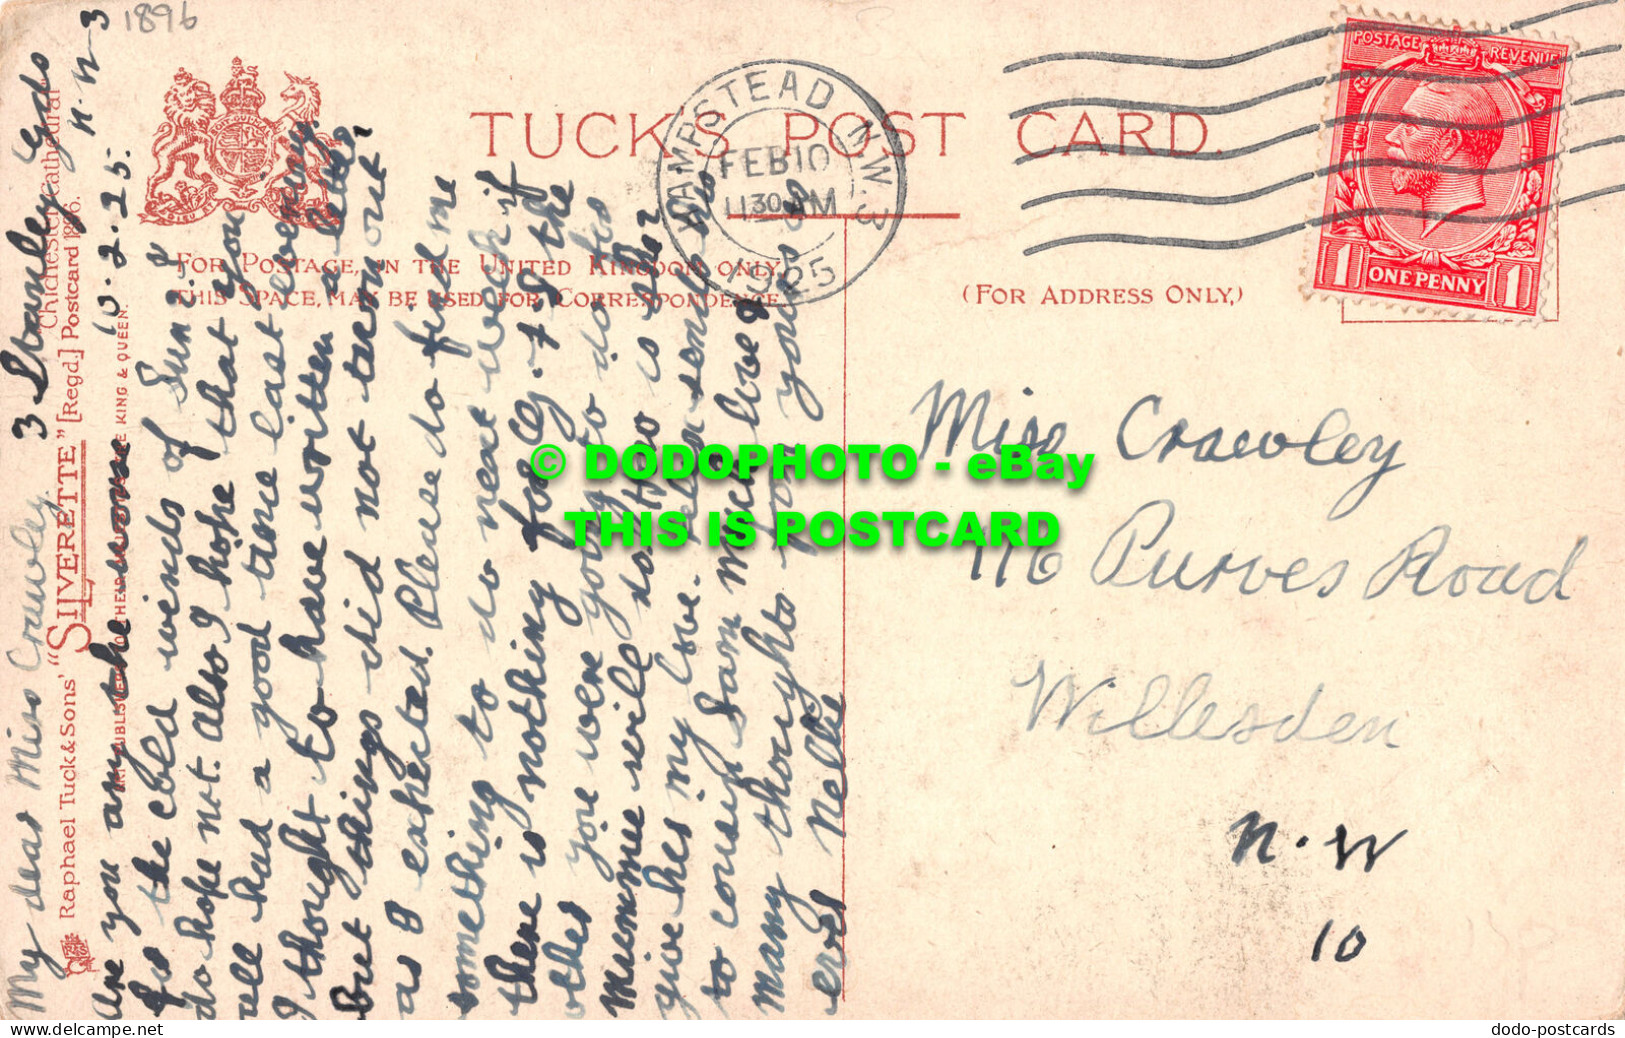 1896
3 Stanley Gds
N.W 3
10.2.25.
My dear Miss Crawley
Are you any the worse
for the cold winds of Sun. I
do hope not. Also I hope that you
all had a good time last evening.
I thought to have written a letter
but things did not turn out
as I expected. Please do find me
something to do next week if
there is nothing for Cly. + of the
other you were going to do his
Mummie will
give her my love. sends his
to cousin Sam Much love &
many thoughts for you as
ever Nellie
Raphael Tuck & Sons' "SILVERETTE" [Regd.] Postcard 1896.
Chichester Cathedral
KING & QUEEN.
DIEU ET
TUCK'S POST CARD.
FOR POSTAGE, IN THE UNITED KINGDOM ONLY,
THIS SPACE, MAY BE USED FOR CORRESPONDENCE.
(FOR ADDRESS ONLY.)
HAMPSTEAD N.W.3
FEB 10
11 30 AM
1925
POSTAGE REVENUE
1 ONE PENNY 1
Miss Crawley
116 Purves Road
Willesden
N.W
10
© DODOPHOTO - eBay
THIS IS POSTCARD
www.delcampe.net
dodo-postcards